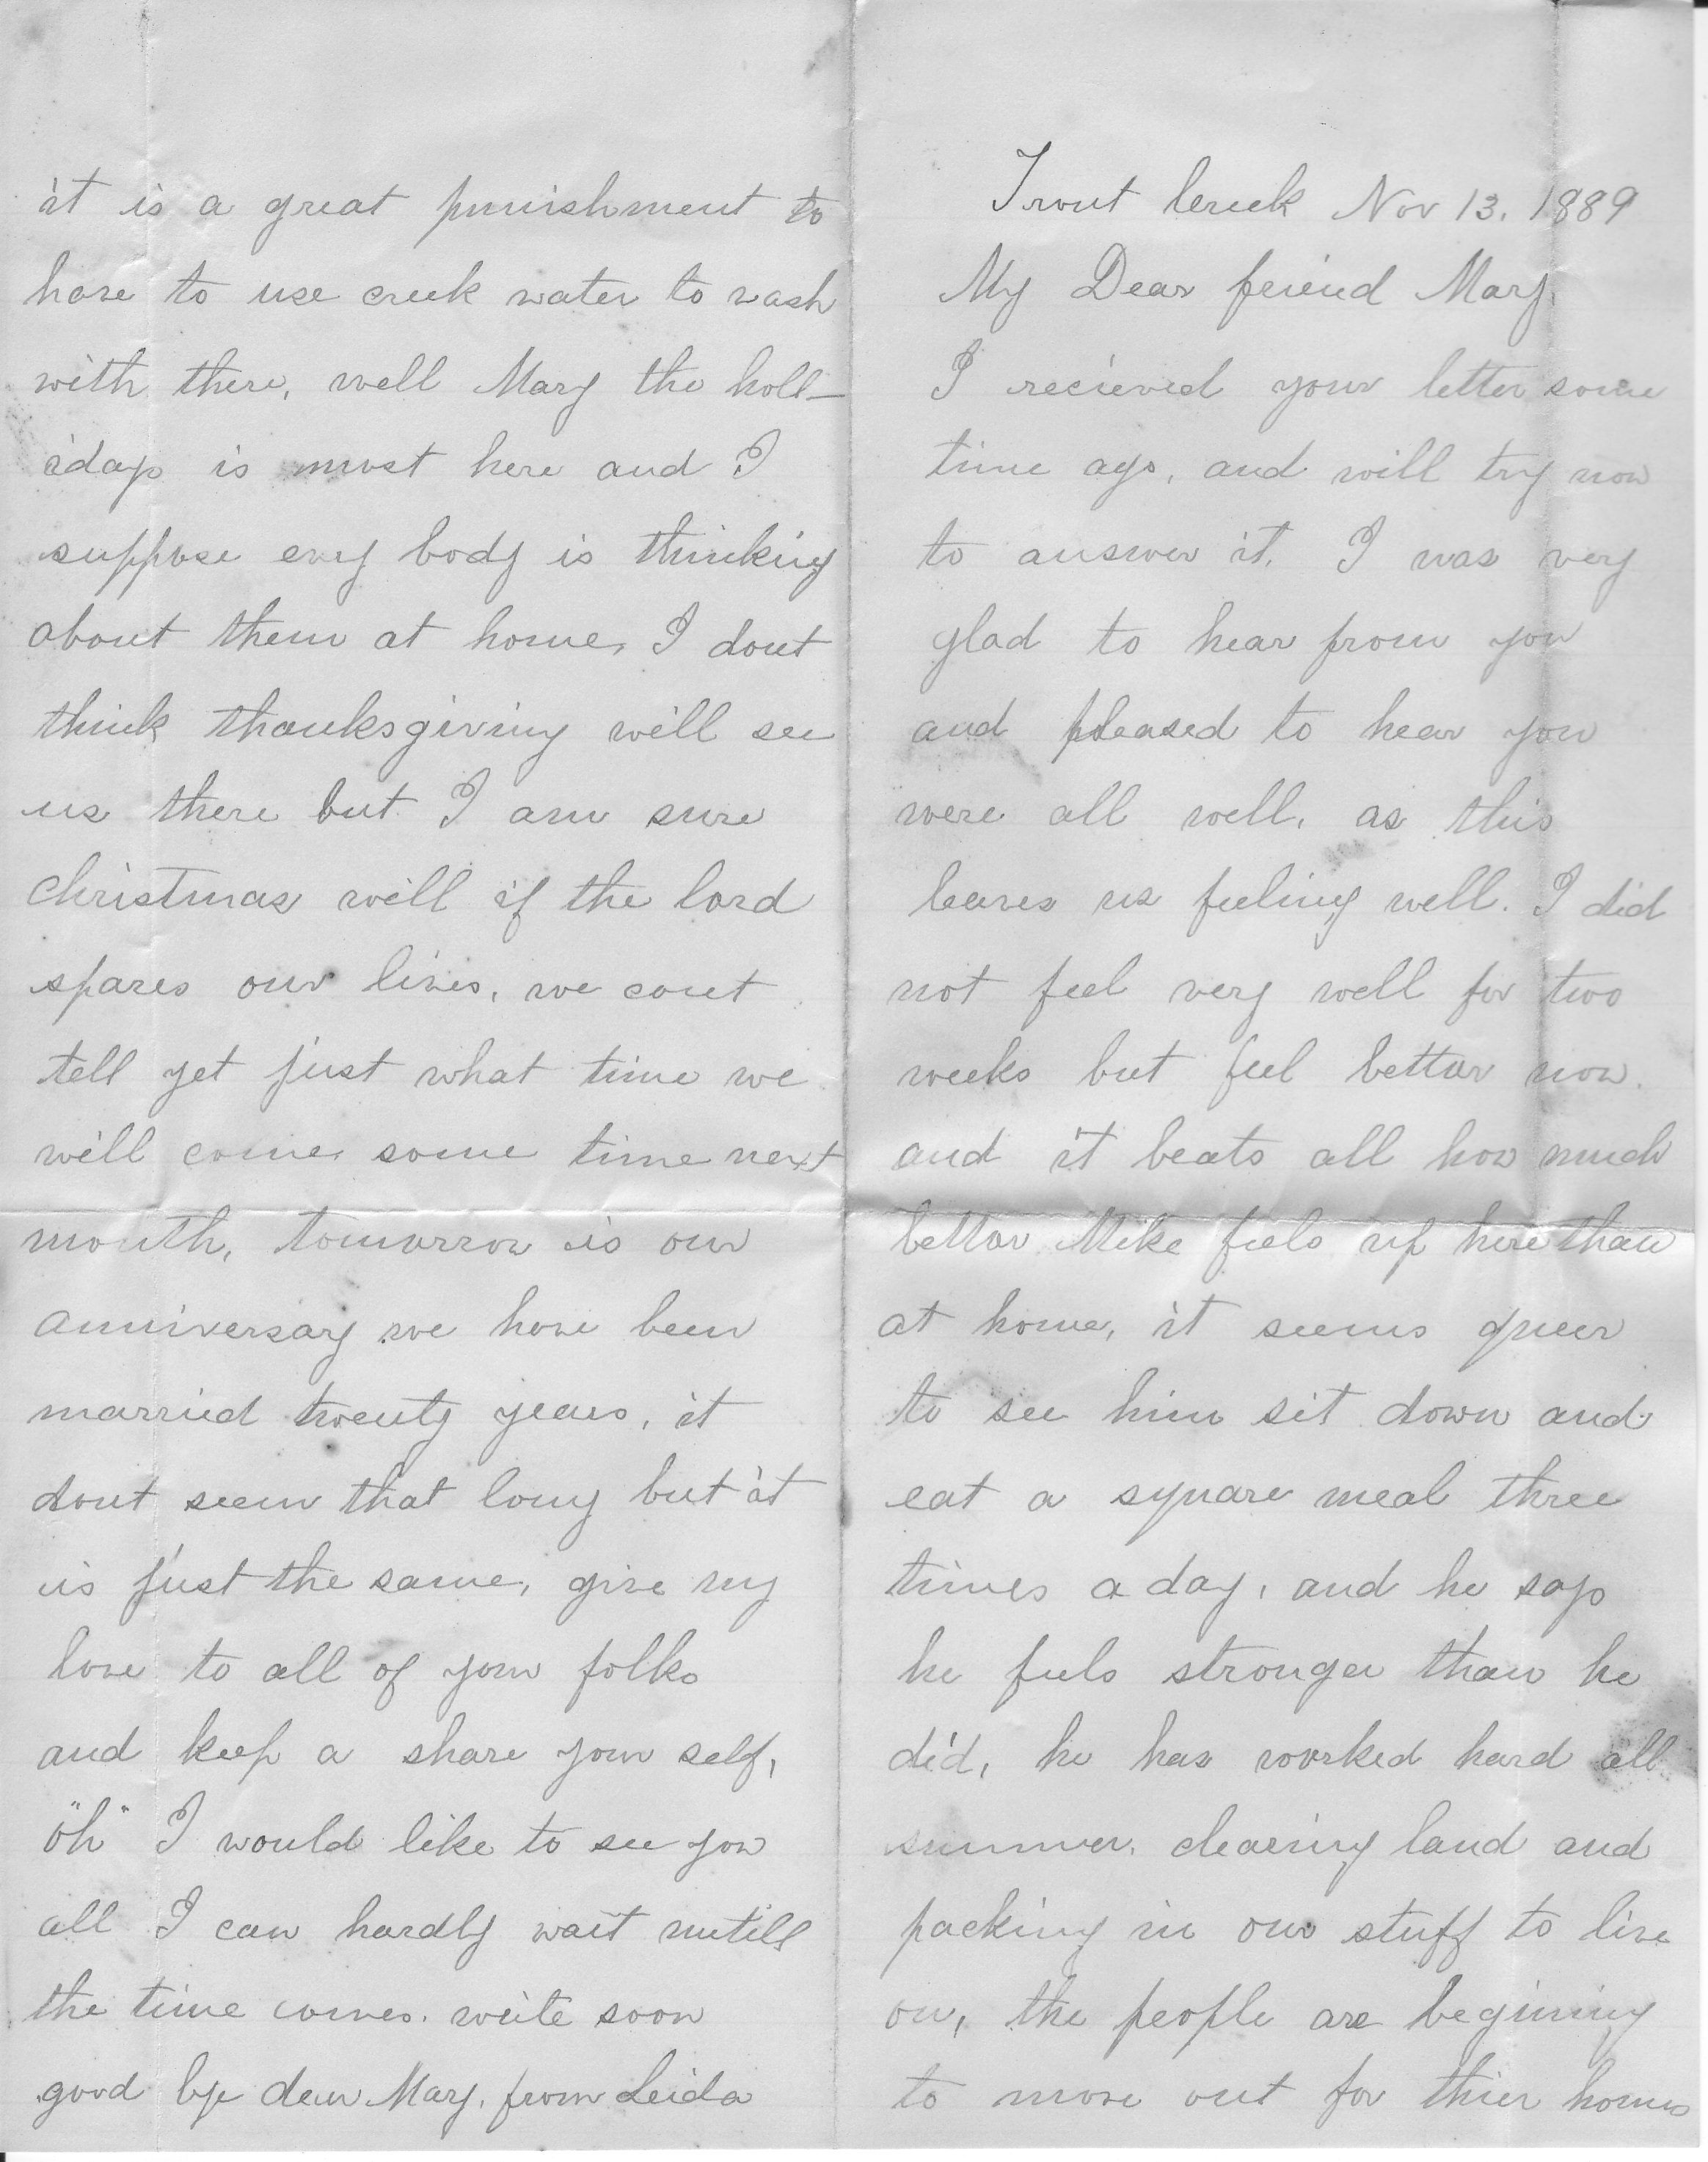 Trout Creek Nov 13. 1889
My Dear feriend Mary.
I recieved your letter some
time ago, and will try now
to answer it. I was very
glad to hear from you
and pleased to hear you
were all well, as this
leaves us feeling well. I did
not feel very well for two
weeks but feel bettar now.
and it beats all how much
bettar Mike feels up here than
at home, it seems queer
to see him sit down and
eat a square meal three
times a day, and he says
he feels stronger than he
did, he has worked hard all
summer. clearing land and
packing in our stuff to live
on, the people are begining
to move out for thier homes
it is a great punishment to
have to use creek water to wash
with there, well Mary the holl-
idays is most here and I
suppose evry body is thinking
about them at home, I dont
think thanksgiving will see
us there but I am sure
christmas will if the lord
spares our lives, we cant
tell yet just what time we
will come, some time next
month, tomorrow is our
anniversary we have been
married twenty years, it
dont seem that long but it
is just the same, give my
love to all of your folks
and keep a share your self,
"oh" I would like to see you
all I can hardly wait untill
the time comes. write soon
good bye dear Mary, from Leida